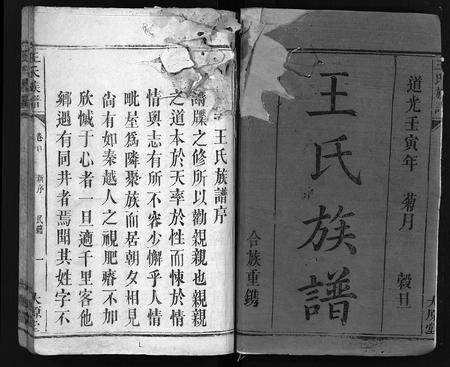 道光壬寅年 菊月 穀旦
王氏族譜
合族重鐫
王氏族譜序
譜牒之修所以勸親親也親親
之道本於天率於性而悚於情
情與志有所不容少懈乎人情
毗屋爲隣聚族而居朝夕相見
尚有如秦越人之視肥瘠不加
欣慽于心者一旦適千里客他
鄉遇有同井者焉聞其姓字不
王氏族譜
卷首
新序
一
太原堂
太原堂